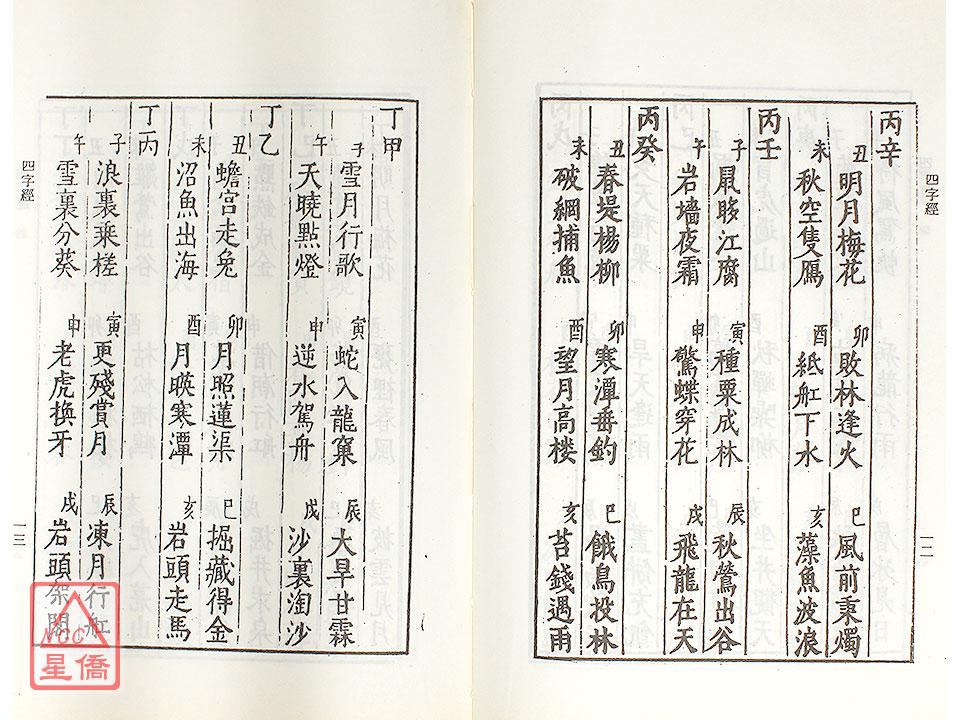 四字經
丙辛
丑 明月梅花 卯 敗林逢火 巳 風前秉燭
未 秋空隻鴈 酉 紙舡下水 亥 藻魚波浪
丙壬
子 鼠
江腐 寅 種粟成林 辰 秋鶯出谷
午 岩墻夜霜 申 驚蝶穿花 戌 飛龍在天
丙癸
丑 春堤楊柳 卯 寒潭垂釣 巳 餓鳥投林
未 破網捕魚 酉 望月高楼 亥 苔錢遇雨
一二
丁甲
子 雪月行歌 寅 蛇入龍窠 辰 大旱甘霖
午 天曉點燈 申 逆水駕舟 戌 沙裏淘沙
丁乙
丑 蟾宮走兔 卯 月照蓮渠 巳 掘藏得金
未 沼魚出海 酉 月暎寒潭 亥 岩頭走馬
丁丙
子 浪裏乘槎 寅 更殘賞月 辰 凍月行舡
午 雪裏分葵 申 老虎換牙 戌 岩頭架閣
四字經
一三
NCC
星僑